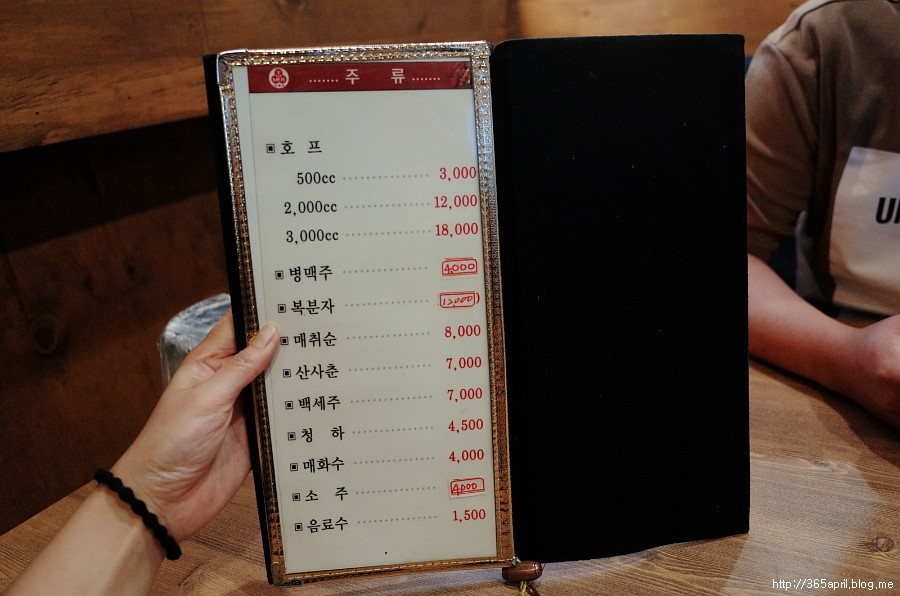 ....... 주 류 .......
▣ 호 프
500cc ................ 3,000
2,000cc ................ 12,000
3,000cc ................ 18,000
▣ 병맥주 ................ 4000
▣ 복분자 ................ 12000
▣ 매취순 ................ 8,000
▣ 산사춘 ................ 7,000
▣ 백세주 ................ 7,000
▣ 청 하 ................ 4,500
▣ 매화수 ................ 4,000
▣ 소 주 ................ 4000
▣ 음료수 ................ 1,500
http://365april.blog.me